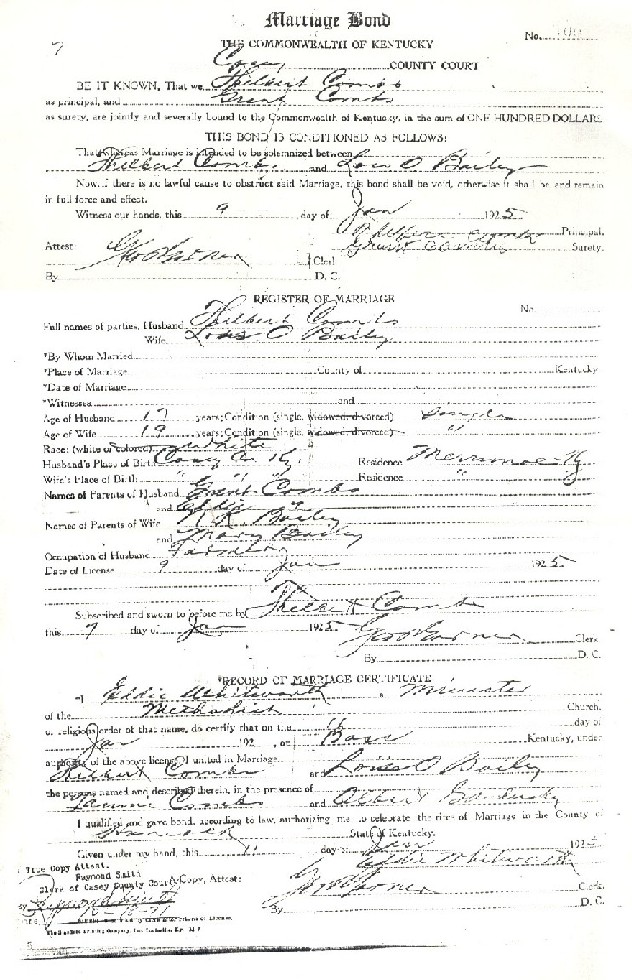 Marriage Bond
No.
7
THE COMMONWEALTH OF KENTUCKY
Casey COUNTY COURT
BE IT KNOWN, That we Thilbert Combs
as principal, and Grant Combs
as surety, are jointly and severally bound to the Commonwealth of Kentucky, in the sum of ONE HUNDRED DOLLARS.
THIS BOND IS CONDITIONED AS FOLLOWS:
That Whereas Marriage is intended to be solemnized between
Thilbert Combs and Lois O Bailey
Now, if there is no lawful cause to obstruct said Marriage, this bond shall be void, otherwise it shall be and remain
in full force and effect.
Witness our hands, this 9 day of Jan 1925
Thilbert Combs Principal.
Grant Combs Surety.
Attest: Clerk
By D. C.
REGISTER OF MARRIAGE
No.
Full names of parties, Husband Thilbert Combs
Wife Lois O Bailey
*By Whom Married
*Place of Marriage County of Kentucky
*Date of Marriage
*Witnesses and
Age of Husband 19 years; Condition (single, widowed, divorced) Single
Age of Wife 19 years; Condition (single, widowed, divorced) "
Race: (white or colored) White
Husband's Place of Birth Casey Co Ky Residence Ky
Wife's Place of Birth " " " Residence "
Names of Parents of Husband Grant Combs
and Effie "
Names of Parents of Wife Bailey
and Mary Bailey
Occupation of Husband Farmer
Date of License 9 day of Jan 1925
Subscribed and sworn to before me by Thilbert Combs
this 9 day of Jan 1925
Clerk
By D. C.
*RECORD OF MARRIAGE CERTIFICATE
I Eddie Whitworth, Minister
of the Methodist Church,
or religious order of that name, do certify that on the 11 day of
Jan 192 , at Bass Kentucky, under
authority of the above license, I united in Marriage
Thilbert Combs and O Bailey
the persons named and described therein, in the presence of
Combs and Albert
I qualified and gave bond, according to law, authorizing me to celebrate the rites of Marriage in the County of
State of Kentucky.
Given under my hand, this 11 day of Jan 1925
Eddie Whitworth
Clerk.
By D. C.
True Copy Attest.
Raymond Smith
Clerk of Casey County Court
Copy, Attest:
By